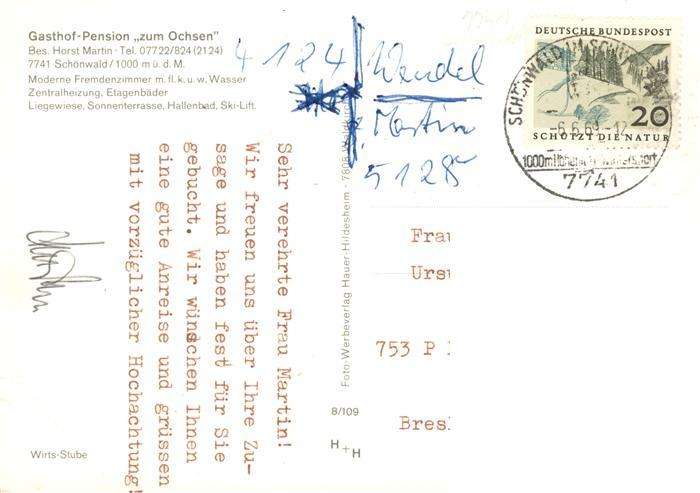 Gasthof-Pension „zum Ochsen"
Bes. Horst Martin · Tel. 07722/824 (2124)
7741 Schönwald / 1000 m ü. d. M.
Moderne Fremdenzimmer m. fl. k. u. w. Wasser
Zentralheizung, Etagenbäder
Liegewiese, Sonnenterrasse, Hallenbad, Ski-Lift.
4124
Wendel
Martin
5128
DEUTSCHE BUNDESPOST
20
SCHÜTZT DIE NATUR
SCHÖNWALD IM SCHW
-6.6.69-12
1000m
7741
Sehr verehrte Frau Martin!
Wir freuen uns über Ihre Zu-
sage und haben fest für Sie
gebucht. Wir wünschen Ihnen
eine gute Anreise und grüssen
mit vorzüglicher Hochachtung!
Foto-Werbeverlag Hauer · Hildesheim · 7808
Frau
Urs
753 P
Bres
8/109
H+H
Wirts-Stube